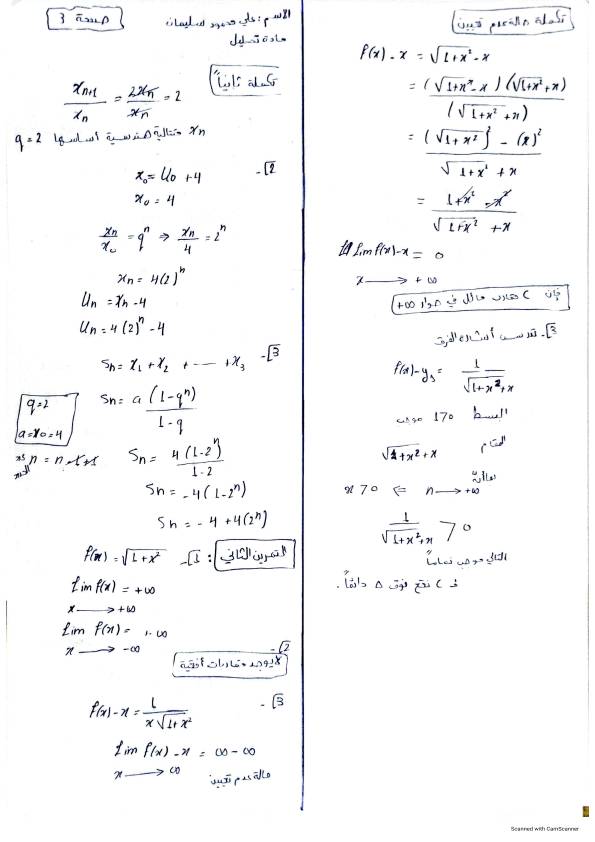 صفحة 3
الاسم: علي محمود سليمان
مادة تحليل
تكملة ثانياً
xₙ₊₁/xₙ = 2xₙ/xₙ = 2
xₙ متتالية هندسية أساسها q = 2
2-
x₀ = U₀ + 4
x₀ = 4
xₙ/x₀ = qⁿ ⇒ xₙ/4 = 2ⁿ
xₙ = 4(2)ⁿ
Uₙ = xₙ - 4
Uₙ = 4(2)ⁿ - 4
3-
Sₙ = x₁ + x₂ + ---- + x₃
Sₙ = a (1-qⁿ)/(1-q)
q = 2
a = x₀ = 4
Sₙ = 4(1-2ⁿ)/(1-2)
Sₙ = -4(1-2ⁿ)
Sₙ = -4 + 4(2ⁿ)
التمرين الثاني: 1- f(x) = √(1+x²)
Lim f(x) = +∞
x → +∞
Lim f(x) = +∞
x → -∞
2-
لا يوجد مقاربات أفقية
3-
f(x) - x = 1/(x√(1+x²))
Lim f(x) - x = ∞ - ∞
x → ∞
حالة عدم تعيين
تكملة حالة عدم تعيين
f(x) - x = √(1+x²) - x
= (√(1+x²) - x)(√(1+x²) + x)/(√(1+x²) + x)
= ((√(1+x²))² - (x)²)/(√(1+x²) + x)
= (1+x² - x²)/(√(1+x²) + x)
Lim f(x) - x = 0
x → +∞
فإن C مقارب مائل في جوار +∞
3- ندرس إشارة الفرق
f(x) - y₅ = 1/(√(1+x²) + x)
البسط 1>0 موجب
المقام
√(1+x²) + x
بما أنه
x > 0 ⇐ n → +∞
1/(√(1+x²) + x) > 0
التالي موجب تماماً
فـ C تقع فوق Δ دائماً.
Scanned with CamScanner